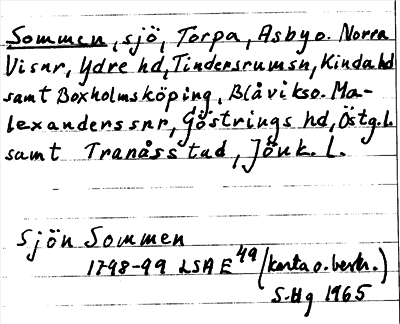 Sommen, sjö, Torpa, Asby o. Norra
Vi snr, Ydre hd, Tindersrumsn, Kinda hd
samt Boxholmsköping, Blåviks o. Ma-
lexanders snr, Göstrings hd, Östg.l.
samt Tranås stad, Jönk. L.
Sjön Sommen
1798-99 LSA E49 (karta o. beskr.)
S.Hg 1965